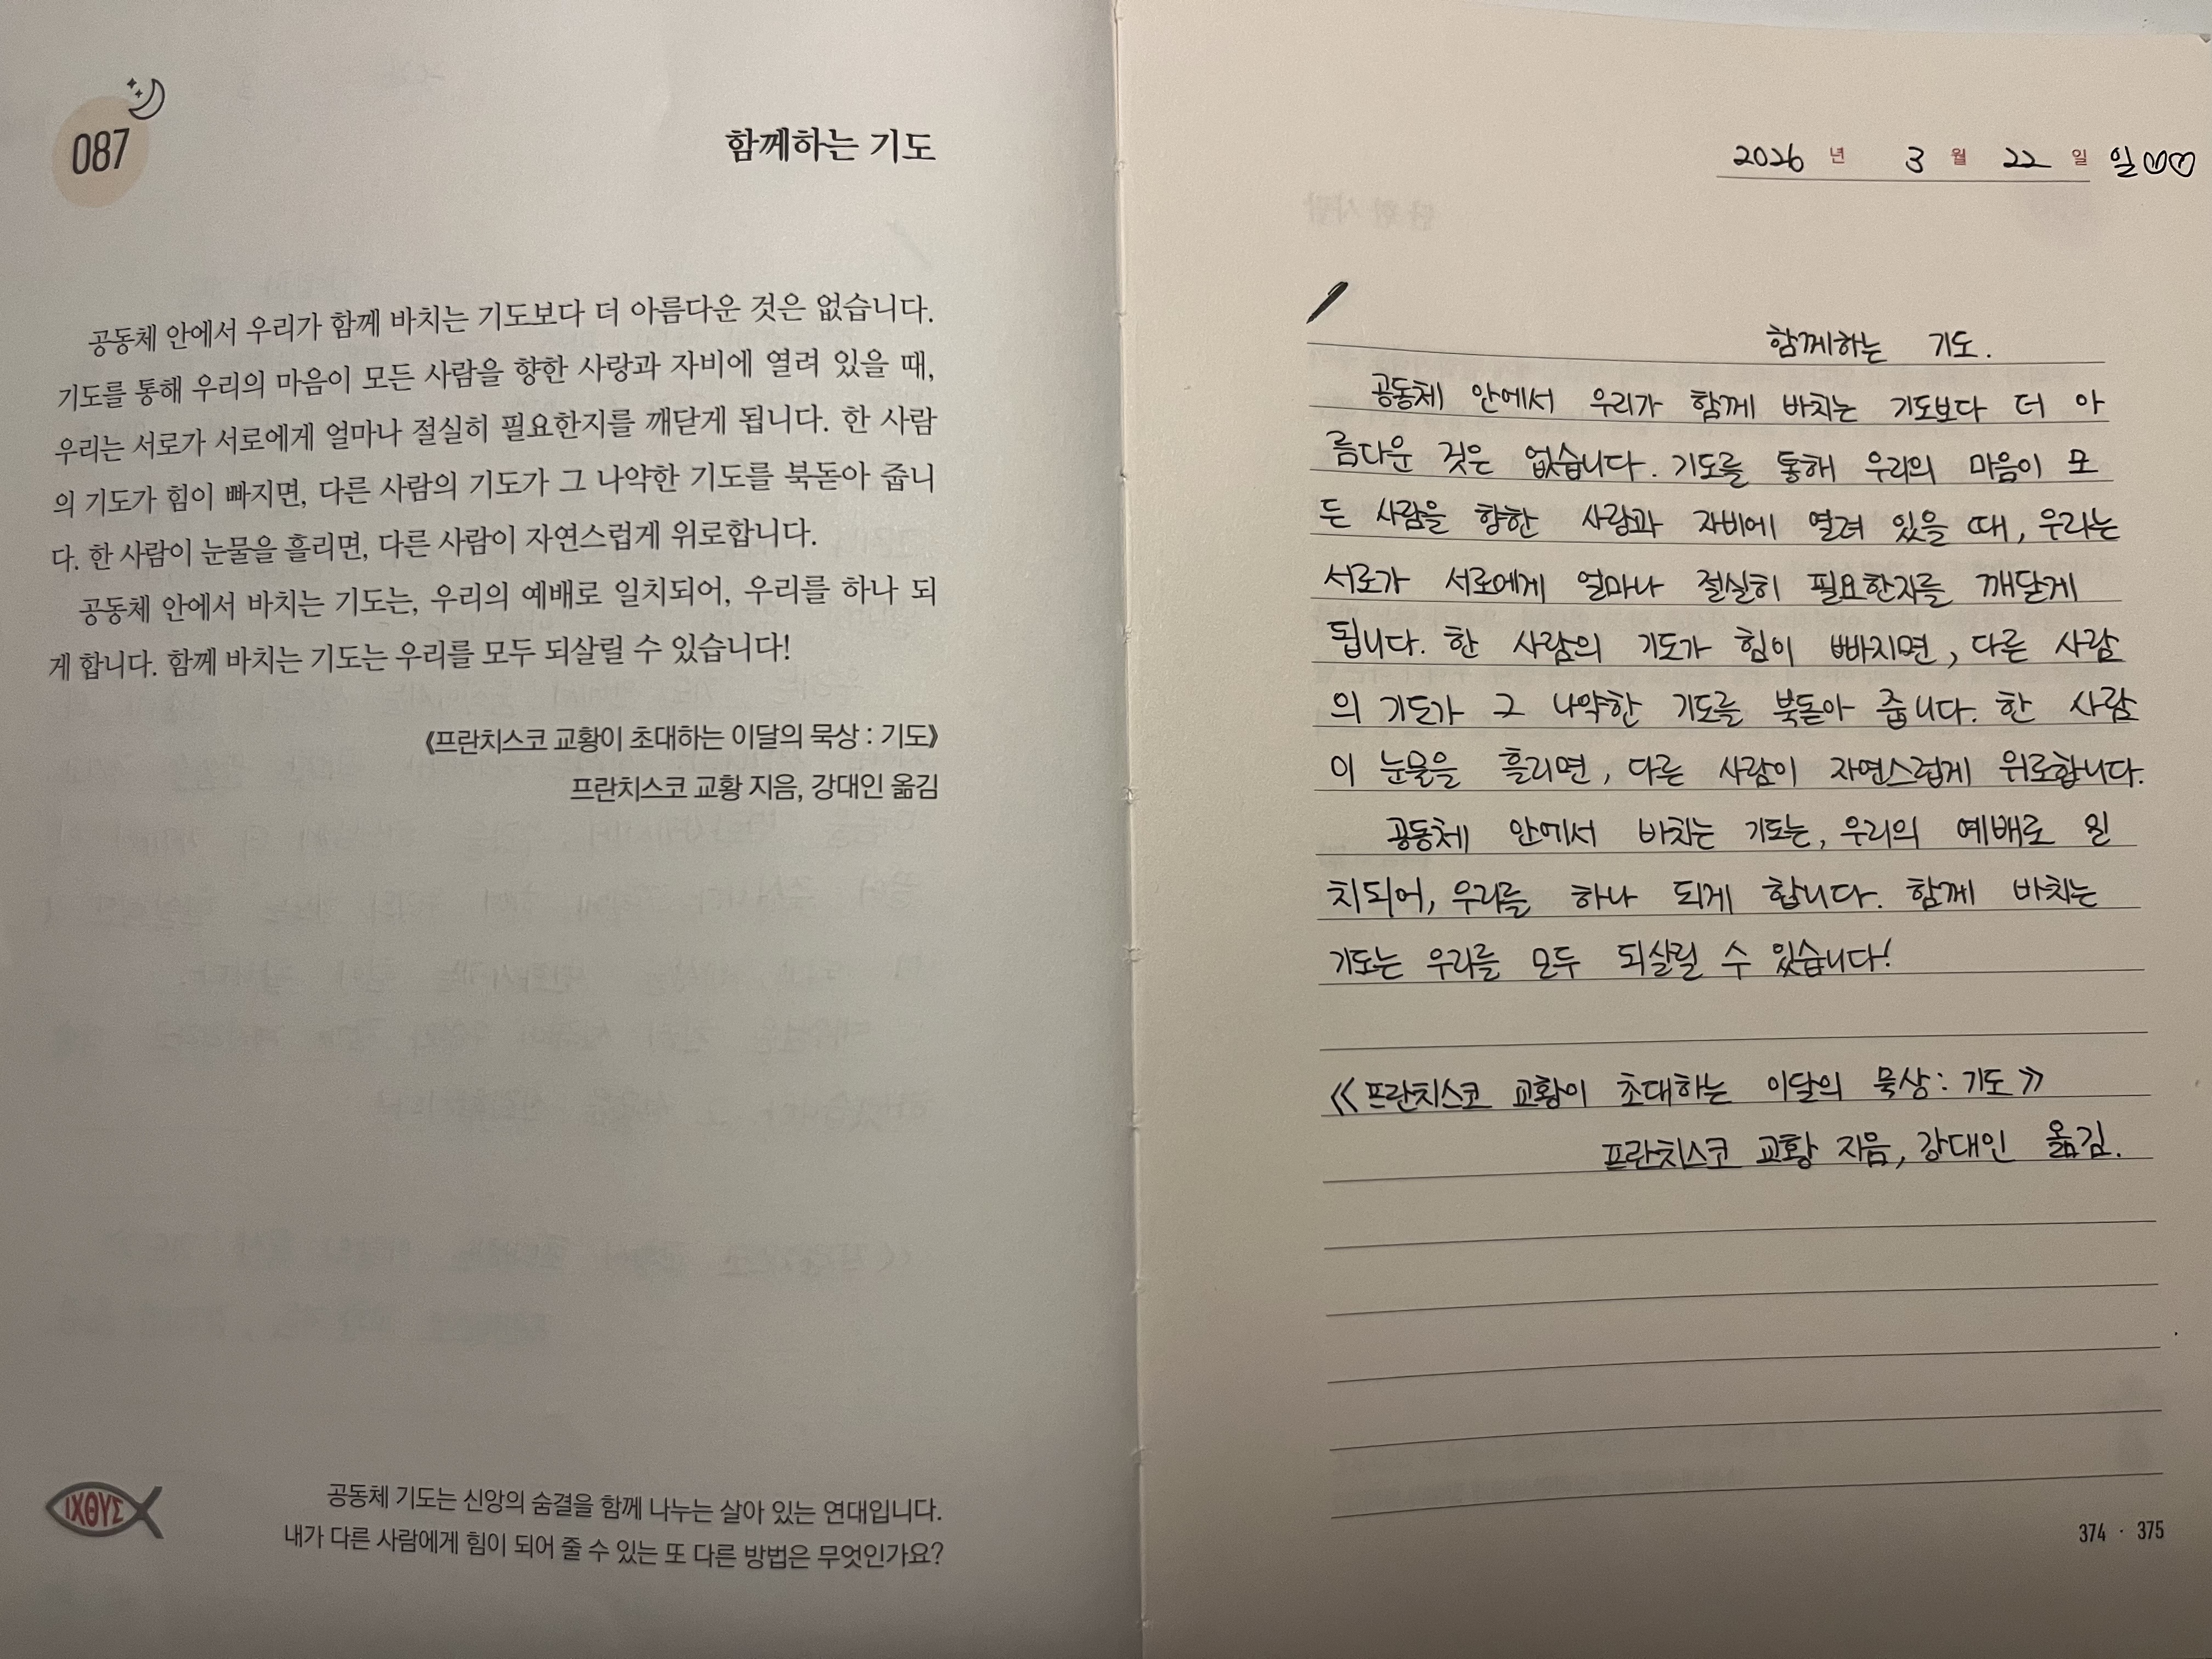 087
함께하는 기도
공동체 안에서 우리가 함께 바치는 기도보다 더 아름다운 것은 없습니다.
기도를 통해 우리의 마음이 모든 사람을 향한 사랑과 자비에 열려 있을 때,
우리는 서로가 서로에게 얼마나 절실히 필요한지를 깨닫게 됩니다. 한 사람
의 기도가 힘이 빠지면, 다른 사람의 기도가 그 나약한 기도를 북돋아 줍니
다. 한 사람이 눈물을 흘리면, 다른 사람이 자연스럽게 위로합니다.
공동체 안에서 바치는 기도는, 우리의 예배로 일치되어, 우리를 하나 되
게 합니다. 함께 바치는 기도는 우리를 모두 되살릴 수 있습니다!
《프란치스코 교황이 초대하는 이달의 묵상 : 기도》
프란치스코 교황 지음, 강대인 옮김
ΙΧΘΥΣ
공동체 기도는 신앙의 숨결을 함께 나누는 살아 있는 연대입니다.
내가 다른 사람에게 힘이 되어 줄 수 있는 또 다른 방법은 무엇인가요?
2026 년 3 월 22 일 일♡♡
함께하는 기도.
공동체 안에서 우리가 함께 바치는 기도보다 더 아
름다운 것은 없습니다. 기도를 통해 우리의 마음이 모
든 사람을 향한 사랑과 자비에 열려 있을 때, 우리는
서로가 서로에게 얼마나 절실히 필요한지를 깨닫게
됩니다. 한 사람의 기도가 힘이 빠지면, 다른 사람
의 기도가 그 나약한 기도를 북돋아 줍니다. 한 사람
이 눈물을 흘리면, 다른 사람이 자연스럽게 위로합니다.
공동체 안에서 바치는 기도는, 우리의 예배로 일
치되어, 우리를 하나 되게 합니다. 함께 바치는
기도는 우리를 모두 되살릴 수 있습니다!
《프란치스코 교황이 초대하는 이달의 묵상 : 기도》
프란치스코 교황 지음, 강대인 옮김.
374 · 375